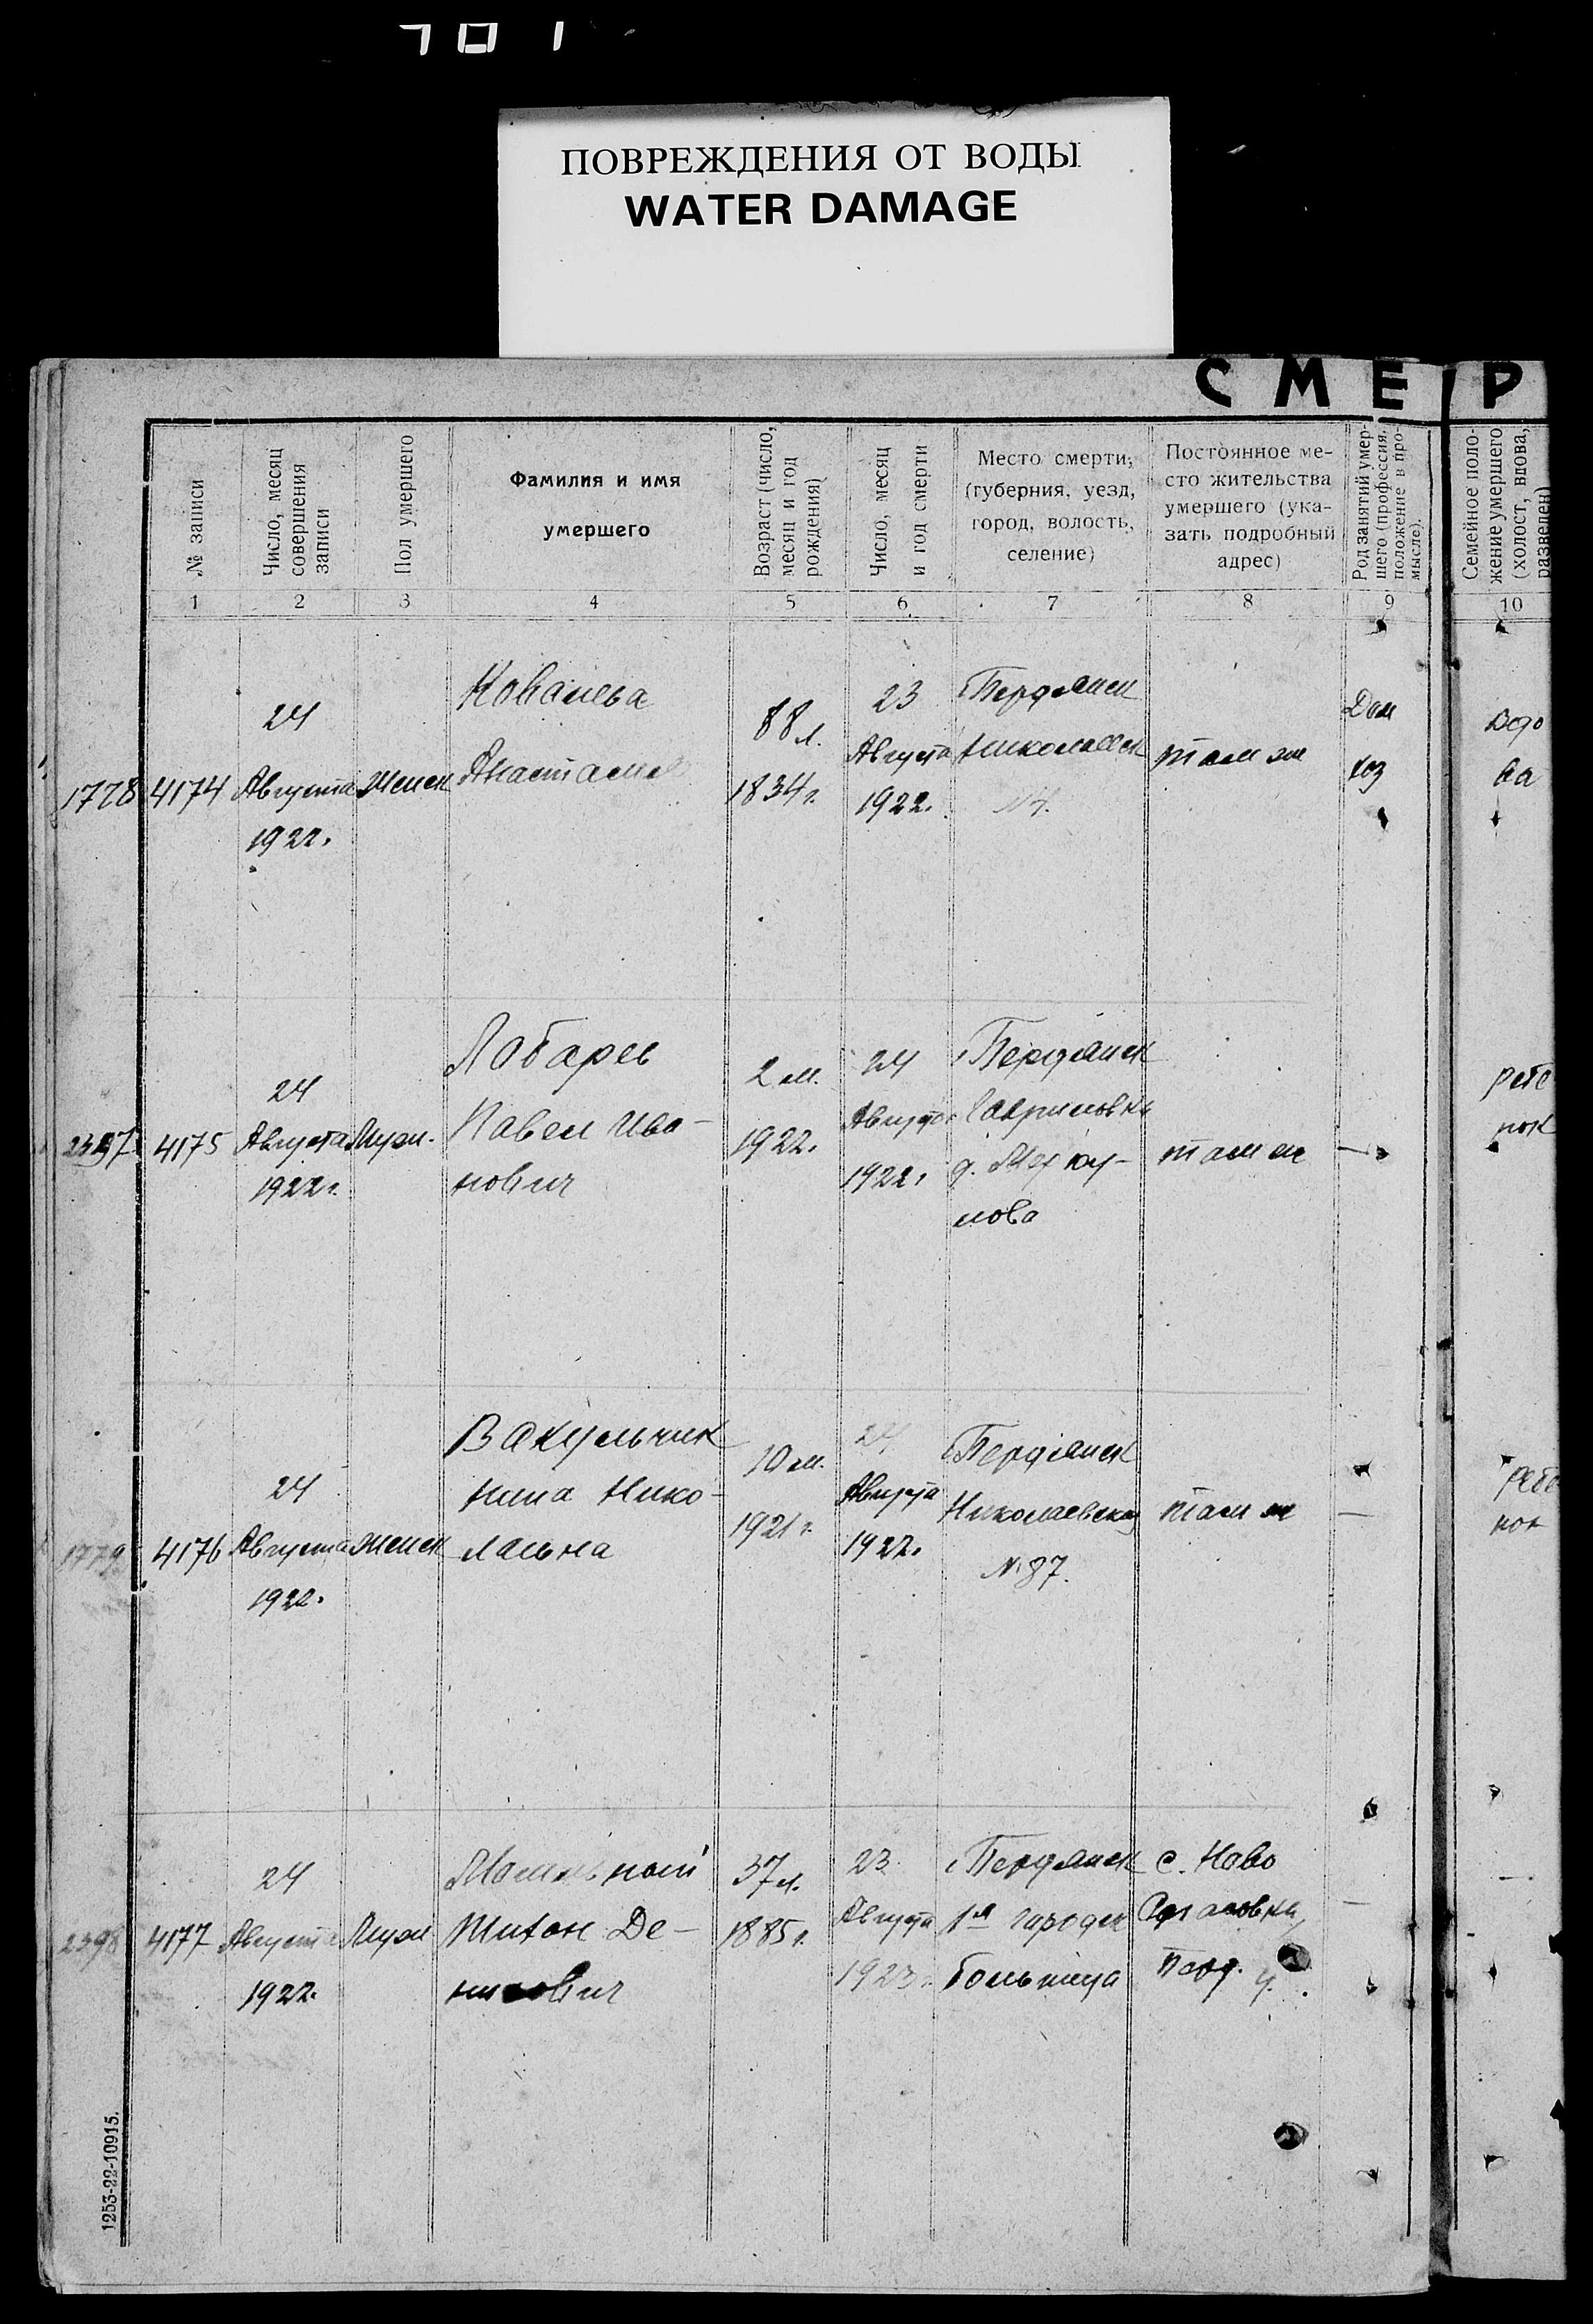 701
ПОВРЕЖДЕНИЯ ОТ ВОДЫ
WATER DAMAGE
СМЕР
№ записи
Число, месяц
совершения
записи
Пол умершего
Фамилия и имя
умершего
Возраст (число,
месяц и год
рождения)
Число, месяц
и год смерти
Место смерти,
(губерния, уезд,
город, волость,
селение)
Постоянное ме-
сто жительства
умершего (ука-
зать подробный
адрес)
Род занятий умер-
шего (профессия,
положение в про-
мысле).
Семейное поло-
жение умершего
(холост, вдова,
разведен)
1 2 3 4 5 6 7 8 9 10
1778
4174
24
Августа
1922.
Женск
Ковалева
Анастасия
88 л.
1834 г.
23
Августа
1922.
Бердянск
Николаевск
там же
Дом
хоз
Вдо
ва
4175
24
Августа
1922 г.
Муж.
Лобарев
Павел Ива-
нович
2 м.
1922.
24
Августа
1922.
Бердянск
там же
—
ребе
нок
1779
4176
24
Августа
1922.
женск
Вакульчик
Нина Нико-
лаевна
10 м.
1921 г.
24
Августа
1922.
Бердянск
Николаевская
№ 87.
там же
—
ребе
нок
2398
4177
24
Августа
1922.
Муж
Тихон Де-
нисович
37 л.
1885 г.
23
Августа
1923 г.
Бердянск
1я городск
больница
с. Ново
—
1253-22-10915.